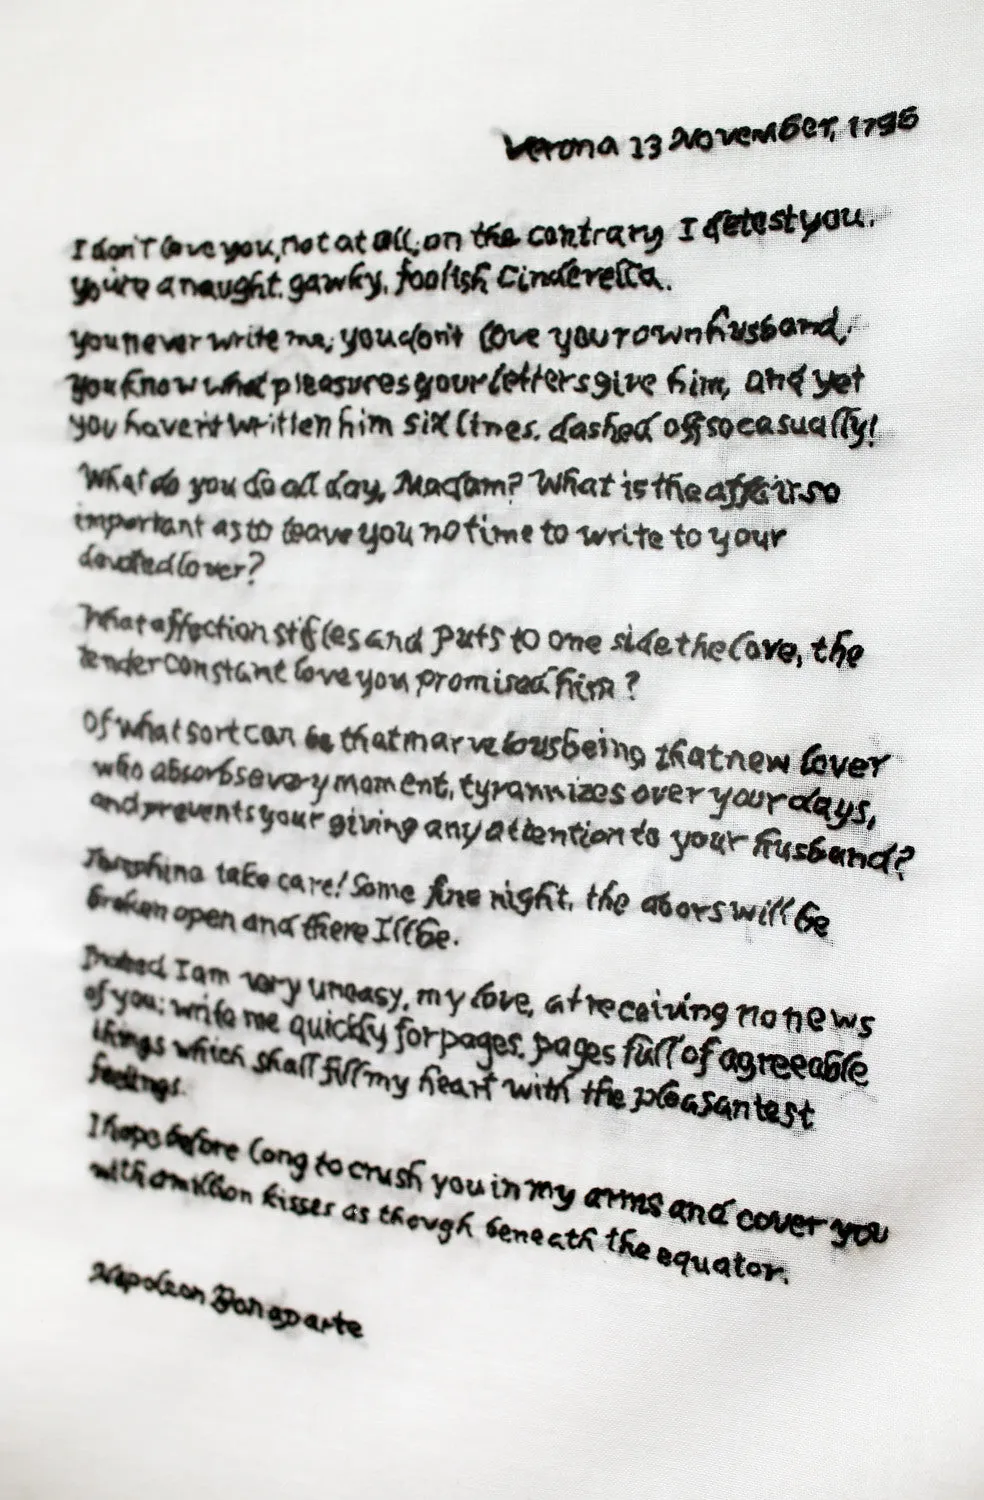 Verona 13 November, 1796
I don't love you, not at all, on the contrary I detest you.
you're a naught. gawky. foolish Cinderella.
you never write me, you don't love your own husband,
you know what pleasures your letters give him, and yet
you haven't written him six lines. dashed off so casually!
What do you do all day, Madam? What is the affair so
important as to leave you no time to write to your
devoted lover?
What affection stifles and puts to one side the love, the
tender constant love you promised him?
Of what sort can be that marvelous being that new lover
who absorbs every moment, tyrannizes over your days,
and prevents your giving any attention to your husband?
Josephine take care! Some fine night, the doors will be
broken open and there I'll be.
Indeed I am very uneasy, my love, at receiving no news
of you; write me quickly for pages. pages full of agreeable
things which shall fill my heart with the pleasantest
feelings.
I hope before long to crush you in my arms and cover you
with a million kisses as though beneath the equator.
Napoleon Bonaparte